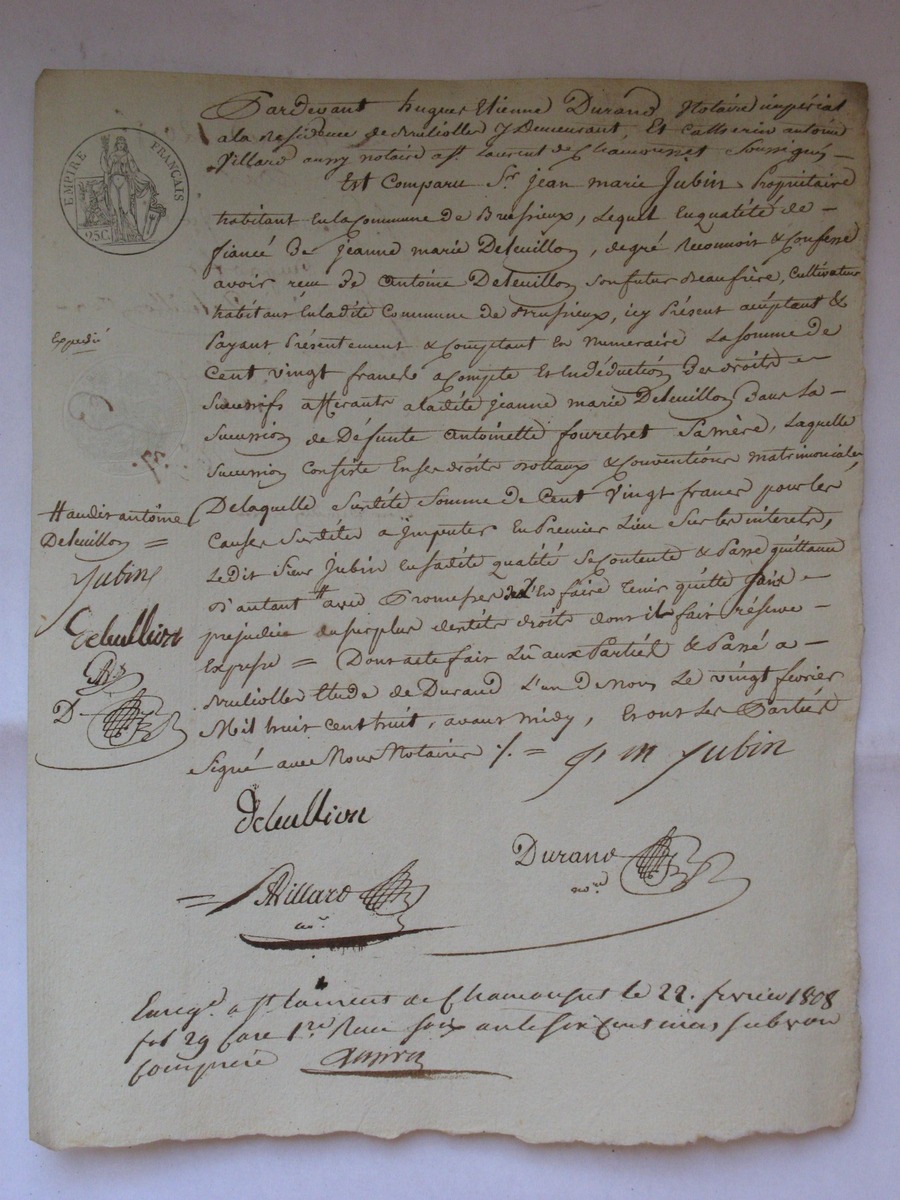 EMPIRE FRANÇAIS
25C.
Pardevant hugues Etienne Durand Notaire impérial
a la Residence de Souliolles y Demeurant, Et Catherin antoine
Villard aussy notaire a st. Laurent de Chamousset soussignés
Est Comparu Sr. jean marie Jubin Propriétaire
habitant En la Commune de Brussieux, Lequel En qualité de
fiancé De jeanne marie Deleuillon, de gré Reconnoit & Confesse
avoir reçu De antoine Deleuillon son futur Beaufrère, Cultivateur
habitant En la dite Commune de Brussieux, icy Présent acceptant &
Expedié
Payant Présentement & Comptant En Numeraire La somme de
Cent vingt francs a Compte Et En déduction Des droits
Successifs afférants a la dite jeanne marie Deleuillon Dans La
Succession de Défunte antoinette fourchet Sa mère, Laquelle
Succession Consiste En ses droits dottaux & Conventions matrimoniales
De laquelle Susdite Somme de Cent vingt francs pour les
Causes Susdites a Imputer En Premier Lieu Sur les interets,
Ledit Sieur Jubin En sa dite qualité Se Contente & Passe quittance
D'autant # avec Promesse d'En faire tenir quitte sans
prejudice du surplus desdits droits dont il fait réserve
Expresse = Dont acte fait Lû aux Parties & Passé a
Souliolles Etude de Durand L'un De Nous Le vingt fevrier
Mil huit Cent huit, avant midy, Et ont Les Parties
Signé avec Nous Notaires ./. =
# audit antoine
Deleuillon =
Jubin
Deleullion
D
j m Jubin
Deleullion
Durand
nore
Villard
Enregé. a st. Laurent de Chamousset le 22. fevrier 1808
fol 29 Case 1re. Reçu soix ante six Cent mes subvon
Comprise